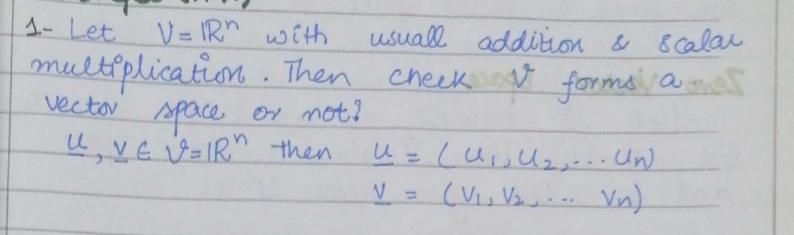 1- Let V = ℝⁿ with usuall addition & scalar
multiplication. Then check V forms a
vector space or not?
u̲, v̲ ∈ V = ℝⁿ then u̲ = (u₁, u₂, ... uₙ)
v̲ = (v₁, v₂, ... vₙ)